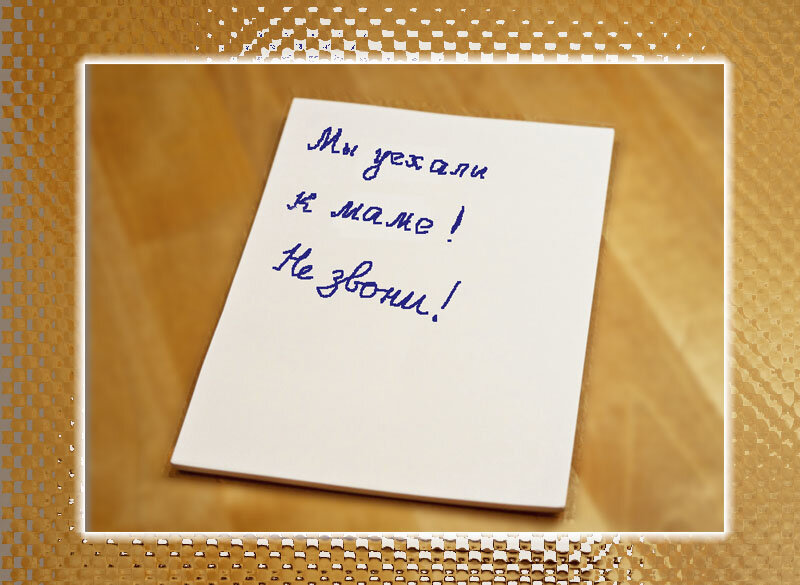 Мы уехали
к маме!
Не звони!